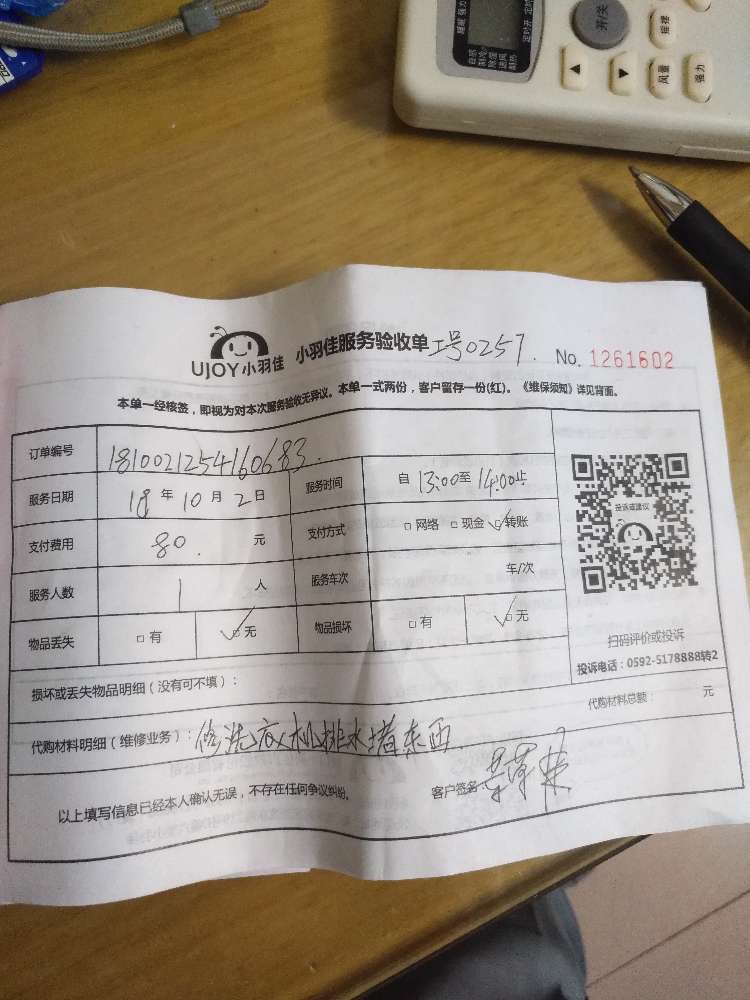 开/关
摇摆
风量
强力
睡眠 强力
定时开 定时关
自感
制冷
除湿
送风
制热
UJOY小羽佳 小羽佳服务验收单 工号0257. No. 1261602
本单一经核签，即视为对本次服务验收无异议。本单一式两份，客户留存一份(红)。《维保须知》详见背面。
订单编号 1810021254160683.
服务日期 18年10月2日 服务时间 自13:00至14:00止
支付费用 80. 元 支付方式 □网络 □现金 ☑转账
服务人数 1 人 服务车次 车/次
物品丢失 □有 ☑无 物品损坏 □有 ☑无
投诉或建议
扫码评价或投诉
投诉电话：0592-5178888转2
损坏或丢失物品明细（没有可不填）：
代购材料明细（维修业务）：修洗衣机排水堵东西. 代购材料总额： 元
以上填写信息已经本人确认无误，不存在任何争议纠纷。 客户签名